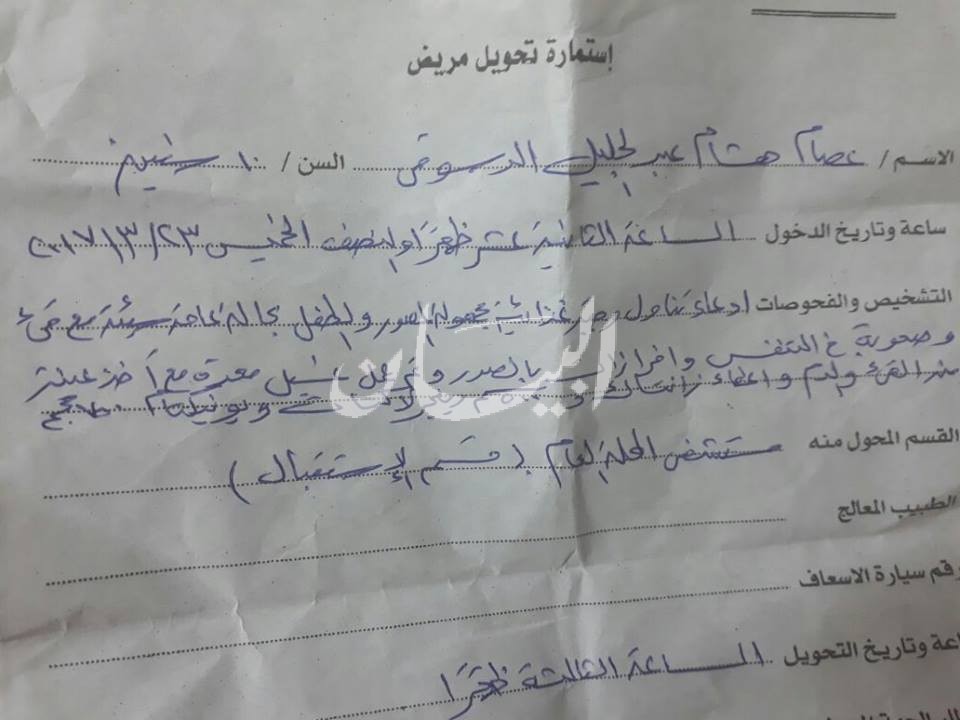 إستمارة تحويل مريض
الاسم / عصام هشام عبد الجليل الدسوقى السن / ١٠ سنين
ساعة وتاريخ الدخول الساعة الثانية عشر ظهرًا والنصف الخميس ٢٣/٣/٢٠١٧
التشخيص والفحوصات ادعاء تناول وجبة غذائية مجهولة المصدر والطفل بحالة عامة سيئة مع قىء
وصعوبة فى التنفس وافرازات بالصدر وتم عمل غسيل معدة مع أخذ عينة
من القىء والدم واعطاء زانتاك
القسم المحول منه مستشفى المحلة العام (قسم الإستقبال)
الطبيب المعالج
رقم سيارة الاسعاف
اعة وتاريخ التحويل الساعة الثالثة ظهرًا
البيان